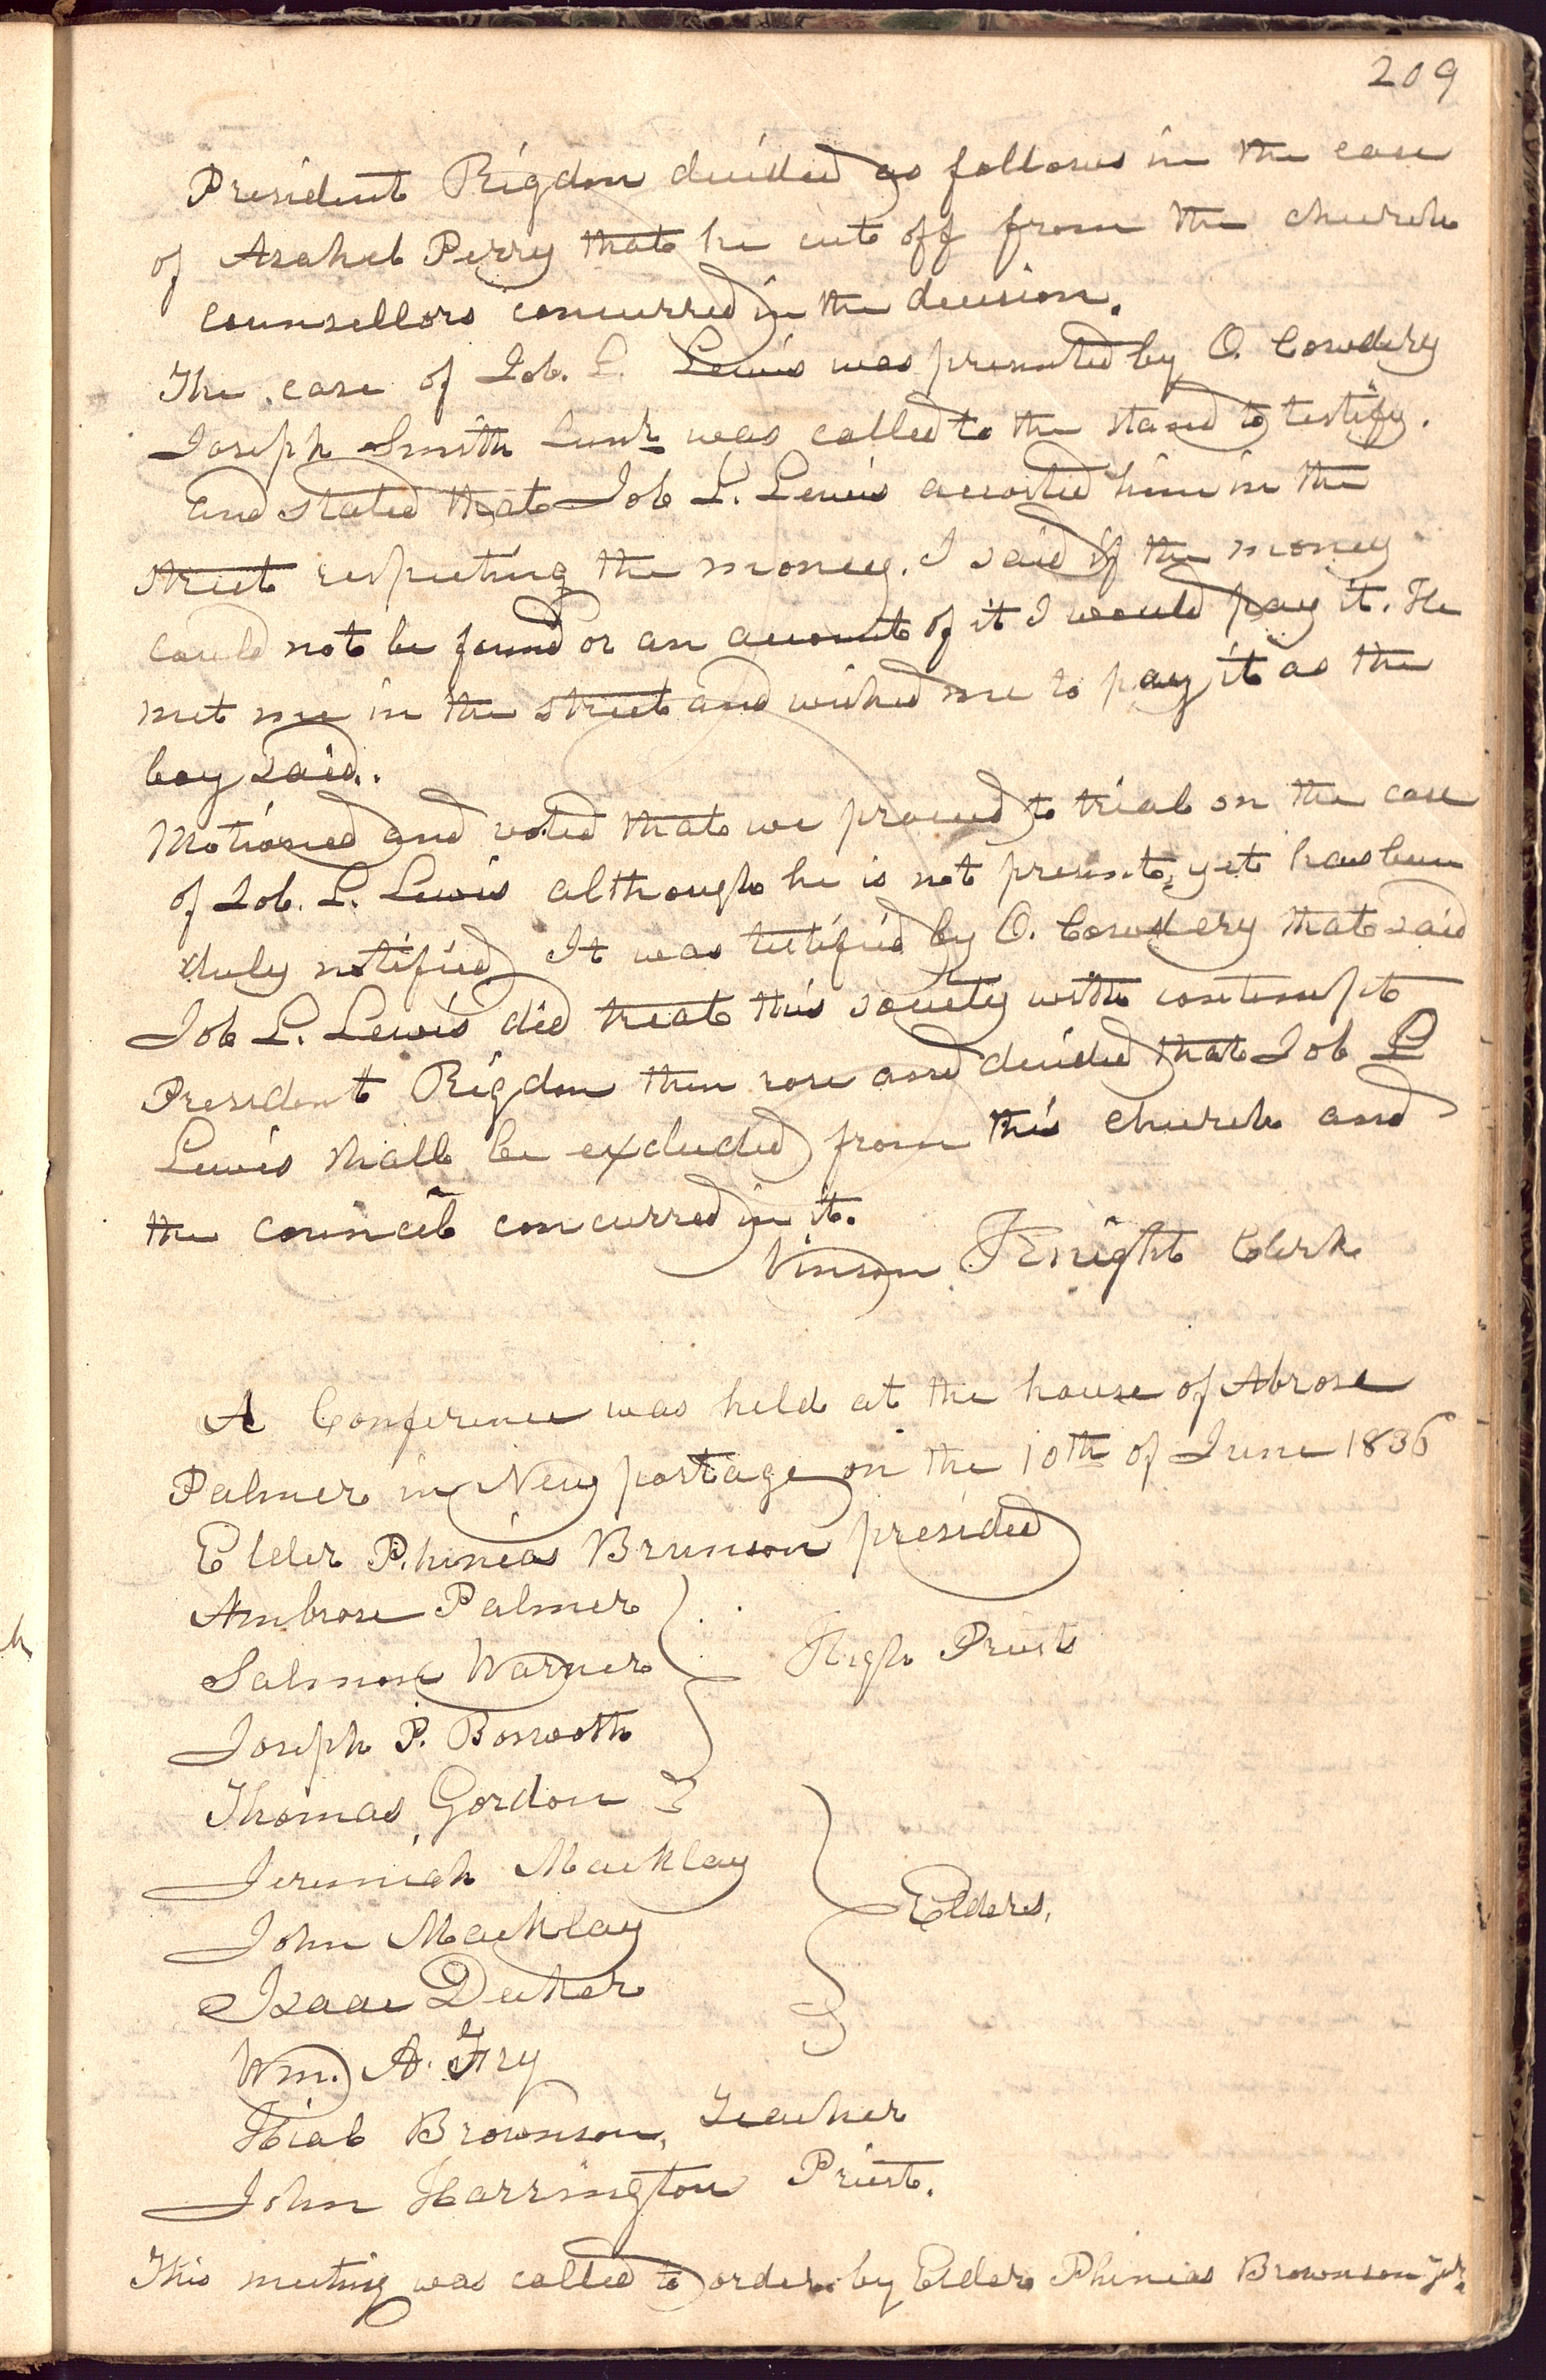 209
President Rigdon decided as follows in the case
of Asahel Perry that he cut off from the church
counsellors concurred in the decision.
The case of Job. L. Lewis was presented by O. Cowdery
Joseph Smith Junr was called to the stand to testify.
and stated that Job L. Lewis accosted him in the
street respecting the money. I said if the money
could not be found or an account of it I would pay it. He
met me in the street and wished me to pay it as the
boy said.
Motioned and voted that we proceed to trial on the case
of Job. L. Lewis although he is not present, yet has been
duly notified It was testified by O. Cowdery that said
Job L. Lewis did treat this society with contempt
President Rigdon then rose and decided that Job L
Lewis shall be excluded from this church and
the council concurred in it.
Vinson Knight Clerk
A Conference was held at the house of Abrose
Palmer in New portage on the 10th of June 1836
Elder Phineas Brunson presided
Ambrose Palmer
Salmon Warner
High Priests
Joseph P. Bosworth
Thomas Gordon
Jeremiah Macklay
John Macklay
Elders,
Isaac Decker
Wm. A. Fry
Hial Brownson, Teacher
John Harrington Priest.
This meeting was called to order by Elder Phineas Brownson Jur.